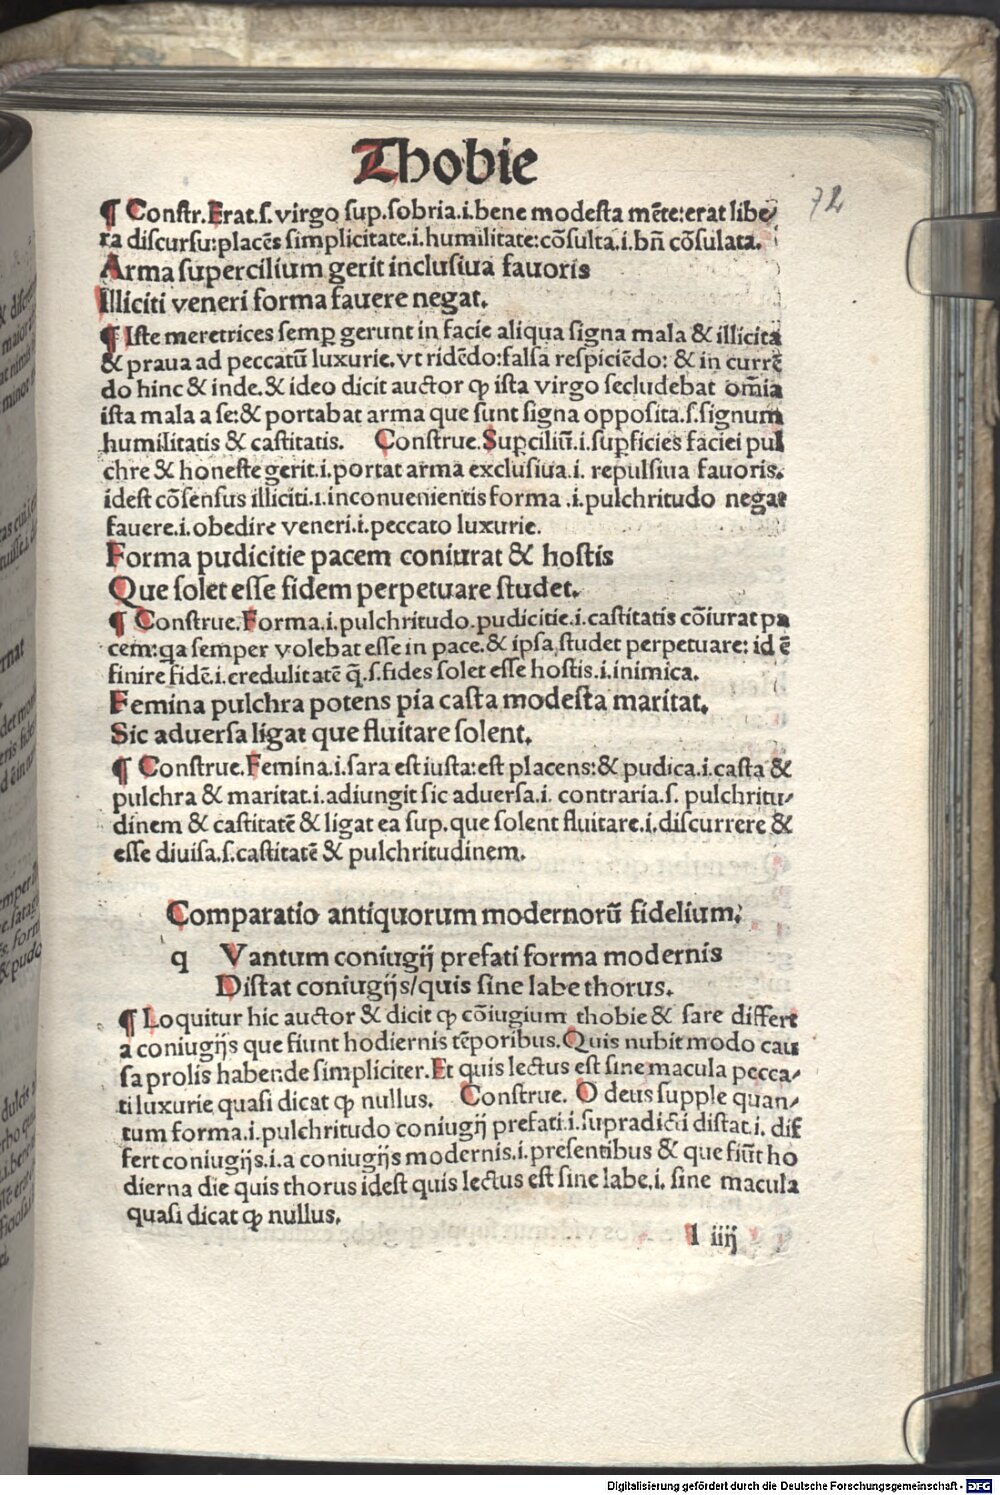 Thobie
72
¶ Constr. Erat.s. virgo sup.sobria.i.bene modesta mēte:erat libe/
ra discursu:placēs simplicitate.i.humilitate:cōsulta.i.bn̄ cōsulata.
Arma supercilium gerit inclusiua fauoris
Illiciti veneri forma fauere negat.
¶ Iste meretrices semꝑ gerunt in facie aliqua signa mala & illicita
& praua ad peccatū luxurie. vt ridēdo:falsa respiciēdo: & in currē
do hinc & inde.& ideo dicit auctor ꝙ ista virgo secludebat om̄ia
ista mala a se:& portabat arma que sunt signa opposita.s.signum
humilitatis & castitatis. Construe. Suꝑciliū.i.suꝑficies faciei pul
chre & honeste gerit.i.portat arma exclusiua.i. repulsiua fauoris.
idest cōsensus illiciti.i.inconuenientis forma .i.pulchritudo negat
fauere.i.obedire veneri.i.peccato luxurie.
Forma pudicitie pacem coniurat & hostis
Que solet esse fidem perpetuare studet.
¶ Construe. Forma.i.pulchritudo.pudicitie.i.castitatis cōiurat pa
cem:qa semper volebat esse in pace.& ipsa studet perpetuare: id ē
finire fidē.i.credulitatē q̄.s.fides solet esse hostis.i.inimica.
Femina pulchra potens pia casta modesta maritat.
Sic aduersa ligat que fluitare solent.
¶ Construe. Femina.i.sara est iusta:est placens:& pudica.i.casta &
pulchra & maritat.i.adiungit sic aduersa.i. contraria.s. pulchritu/
dinem & castitatē & ligat ea sup.que solent fluitare.i.discurrere &
esse diuisa.s.castitatē & pulchritudinem.
Comparatio antiquorum modernorū fidelium.
q Vantum coniugij prefati forma modernis
Distat coniugijs/quis sine labe thorus.
¶ Loquitur hic auctor & dicit ꝙ cōiugium thobie & sare differt
a coniugijs que fiunt hodiernis tēporibus. Quis nubit modo cau
sa prolis habende simpliciter. Et quis lectus est sine macula pecca/
ti luxurie quasi dicat ꝙ nullus. Construe. O deus supple quan/
tum forma.i.pulchritudo coniugij prefati.i.supradicti distat.i. dif
fert coniugijs.i.a coniugijs modernis.i.presentibus & que fiūt ho
dierna die quis thorus idest quis lectus est sine labe.i. sine macula
quasi dicat ꝙ nullus.
l iiij
Digitalisierung gefördert durch die Deutsche Forschungsgemeinschaft - DFG